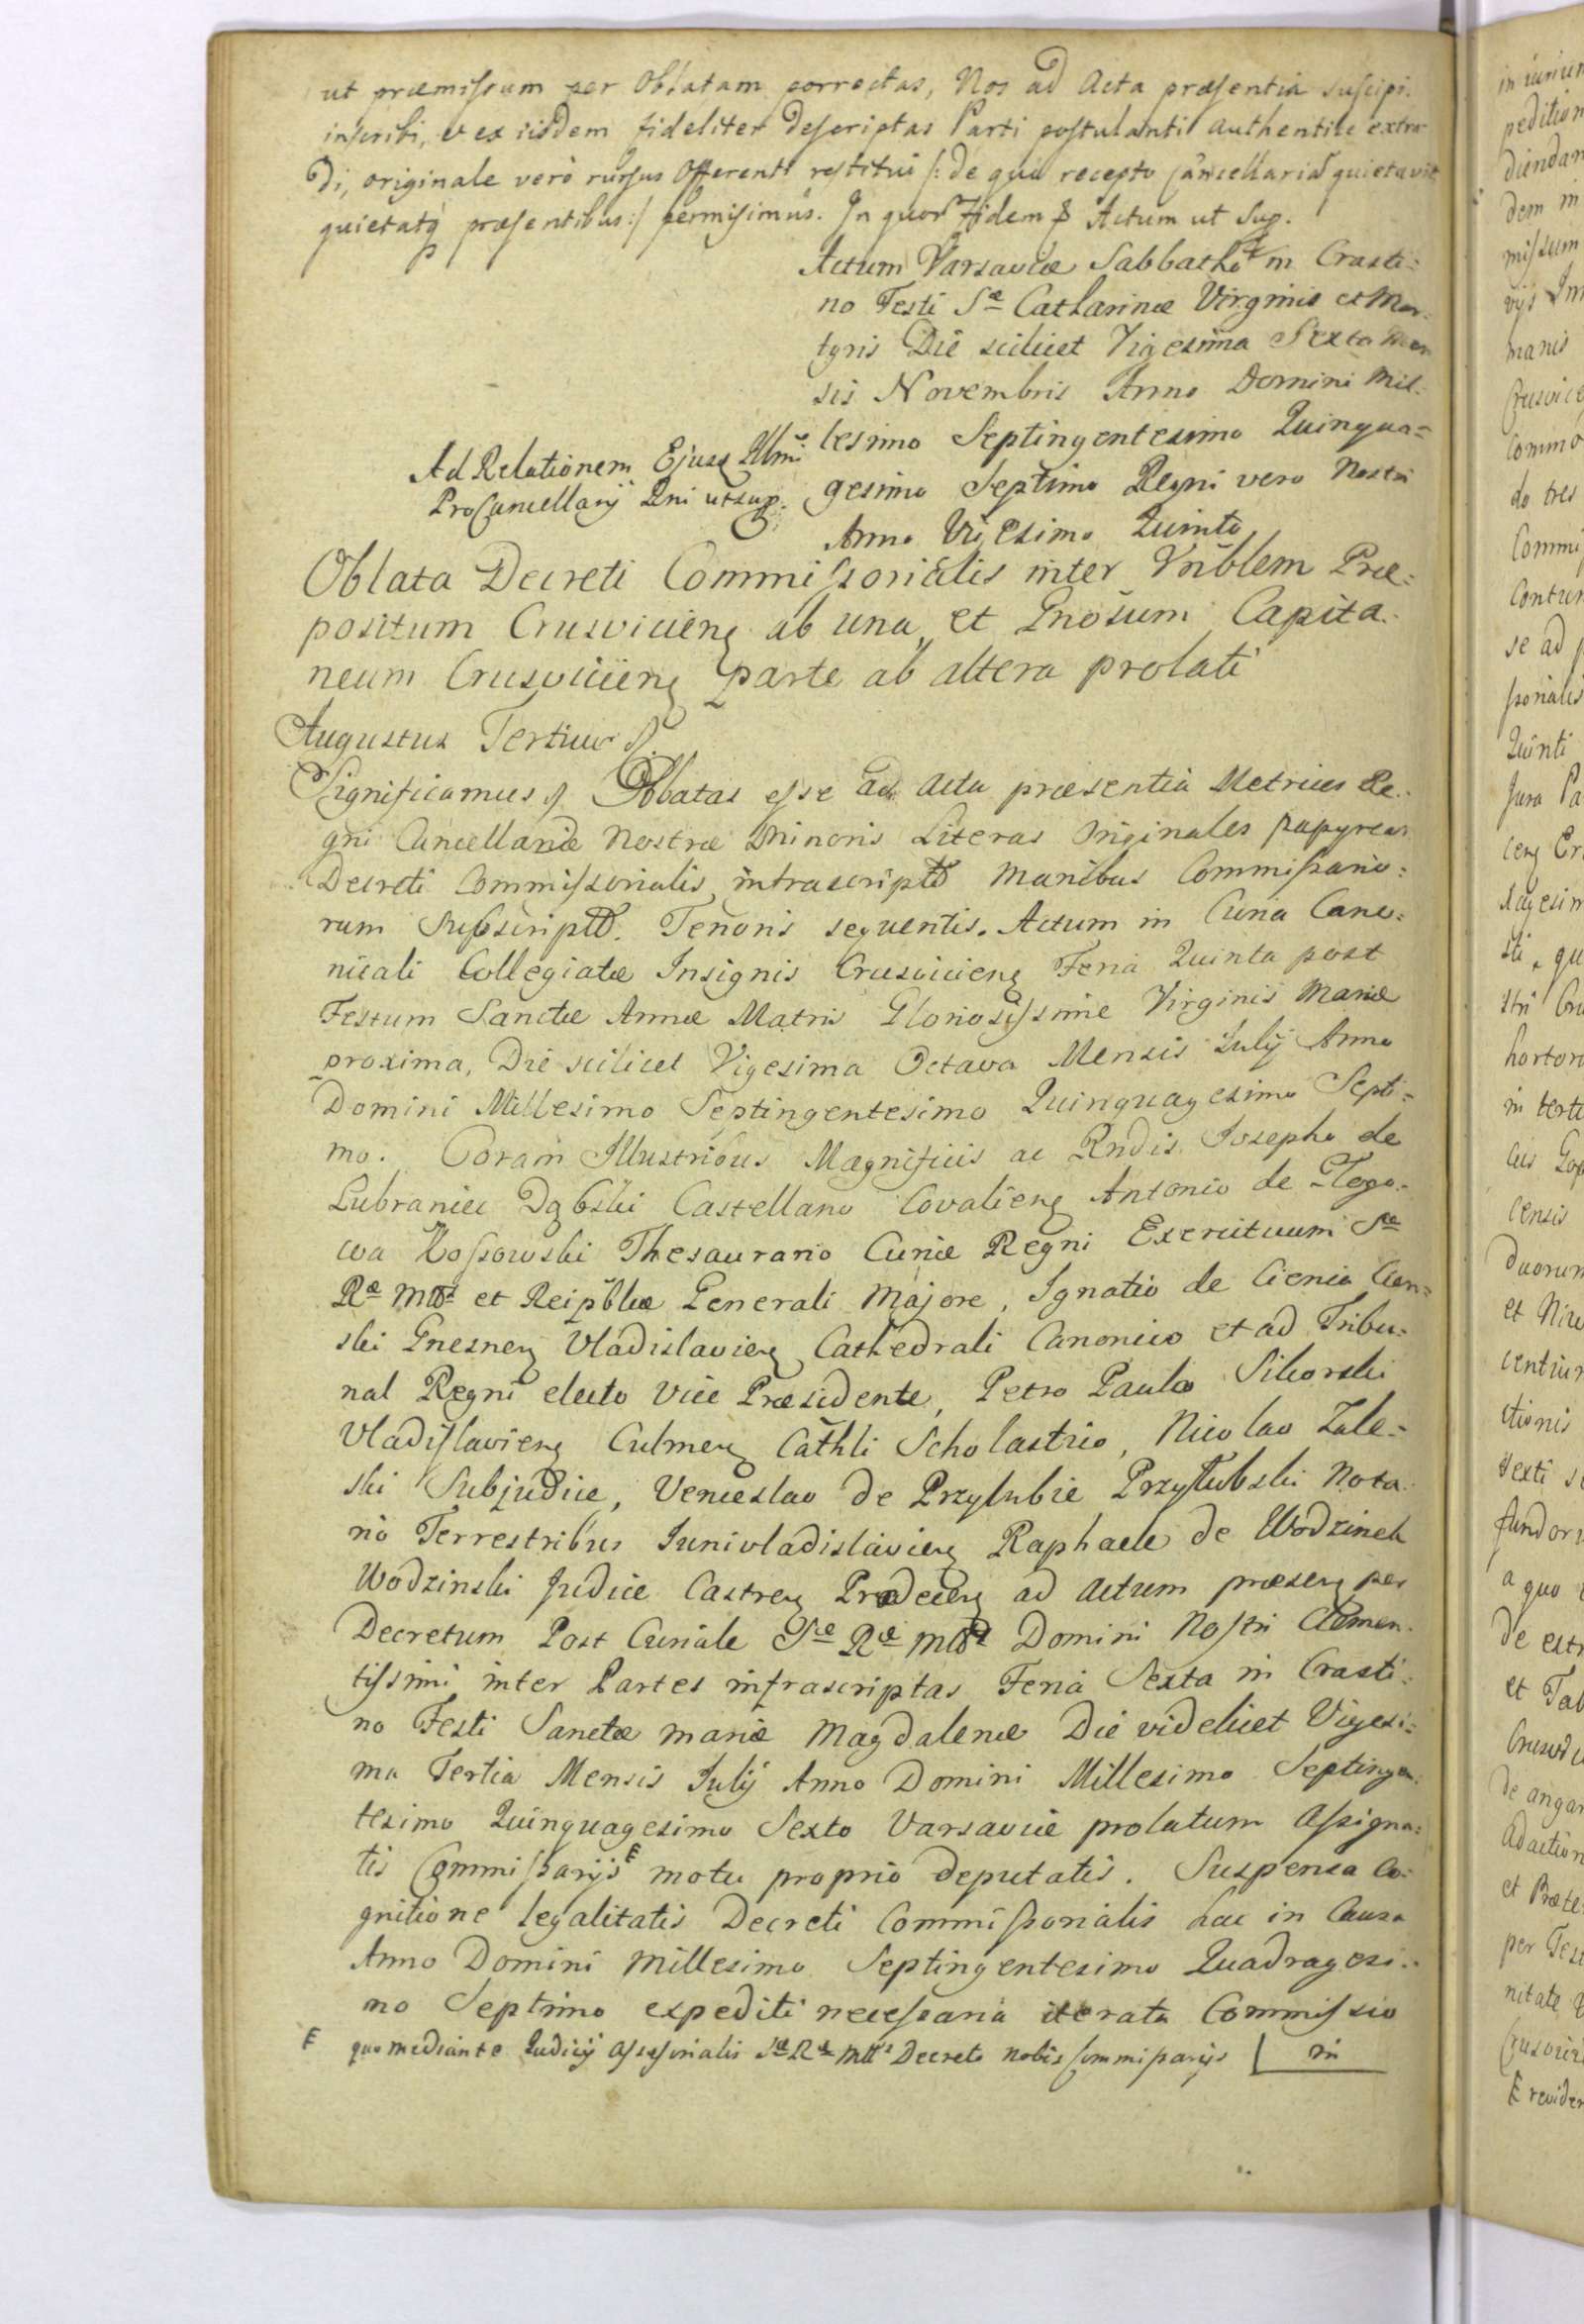 ut præmissum per Oblatam porrectas, Nos ad Acta præsentia suscipi.
inscribi, et ex iisdem fideliter descriptas Parti postulanti authentice extra-
di, originale verò rursus Offerenti restitui /: de quo recepto Cancellariam quietavit
quietatq præsentibus :/ permisimus. In quor fidem Actum ut sup.
Actum Varsaviæ Sabbatho in Crasti=
no Festi Sæ Catharinæ Virginis et Mar=
tyris Die scilicet Vigesima Sexta Men
sis Novembris Anno Domini Mil-
lesimo Septingentesimo Quinqua=
gesimo Septimo Regni vero Nostri
Anno Vigesimo Quinto
Ad Relationem Ejusq Illmi
ProCancellarij Rni ut sup.
Oblata Decreti Commissorialis inter Vnblem Præ=
positum Crusvicieng ab una, et Gnosum Capita-
neum Crusvicieng parte ab altera prolati
Augustus Tertius
Significamus Oblatas esse ad Acta præsentia Metrices Re-
gni Cancellariæ Nostræ Minoris Literas Originales papyreas
Decreti Commissorialis intrascripti Manibus Commissario=
rum Subscript. Tenoris sequentis. Actum in Curia Cano=
nicali Collegiatæ Insignis Crusvicieng Feria Quinta post
Festum Sanctæ Annæ Matris Gloriosissimæ Virginis Mariæ
proxima, Die scilicet Vigesima Octava Mensis Julij Anno
Domini Millesimo Septingentesimo Quinquagesimo Septi=
mo. Coram Illustribus Magnificis ac Rndis Josepho de
Lubraniec Dąbski Castellano Covalieng Antonio de Głogo-
wa Kossowski Thesaurario Curiæ Regni Exercituum Sæ
Ræ Mttis et Reipblicæ Generali Majore, Ignatio de Cienia Cien=
ski Gnesneng Vladislavieng Cathedrali Canonico et ad Tribu=
nal Regni electo Vice Præsidente, Petro Paulo Sikorski
Vladislavieng Culmeng Cathli Scholastrico, Nicolao Zale=
ski Subjudice, Venceslao de Przyłubie Przyłubski Nota
rio Terrestribus Junivladislavieng Raphaele de Wodzinek
Wodzinski Judice Castreng Prædeceng ad Actum præseng per
Decretum Post Curiale Sæ Ræ Mttis Domini Nostri Clemen-
tissimi inter Partes infrascriptas Feria Sexta in Crasti-
no Festi Sanctæ Mariæ Magdalenæ Die videlicet Vigesi=
ma Tertia Mensis Julij Anno Domini Millesimo Septingen
tesimo Quinquagesimo Sexto Varsaviæ prolatum Assigna=
tis Commissarijs E motu proprio deputatis. Suspensa Co-
gnitione legalitatis Decreti Commissorialis hac in Causa
Anno Domini Millesimo Septingentesimo Quadragesi-
mo Septimo expediti necessaria iterata Commissio
E quo mediante Judicij Assessorialis Sæ Ræ Mttis Decreto nobis Commissarijs | in